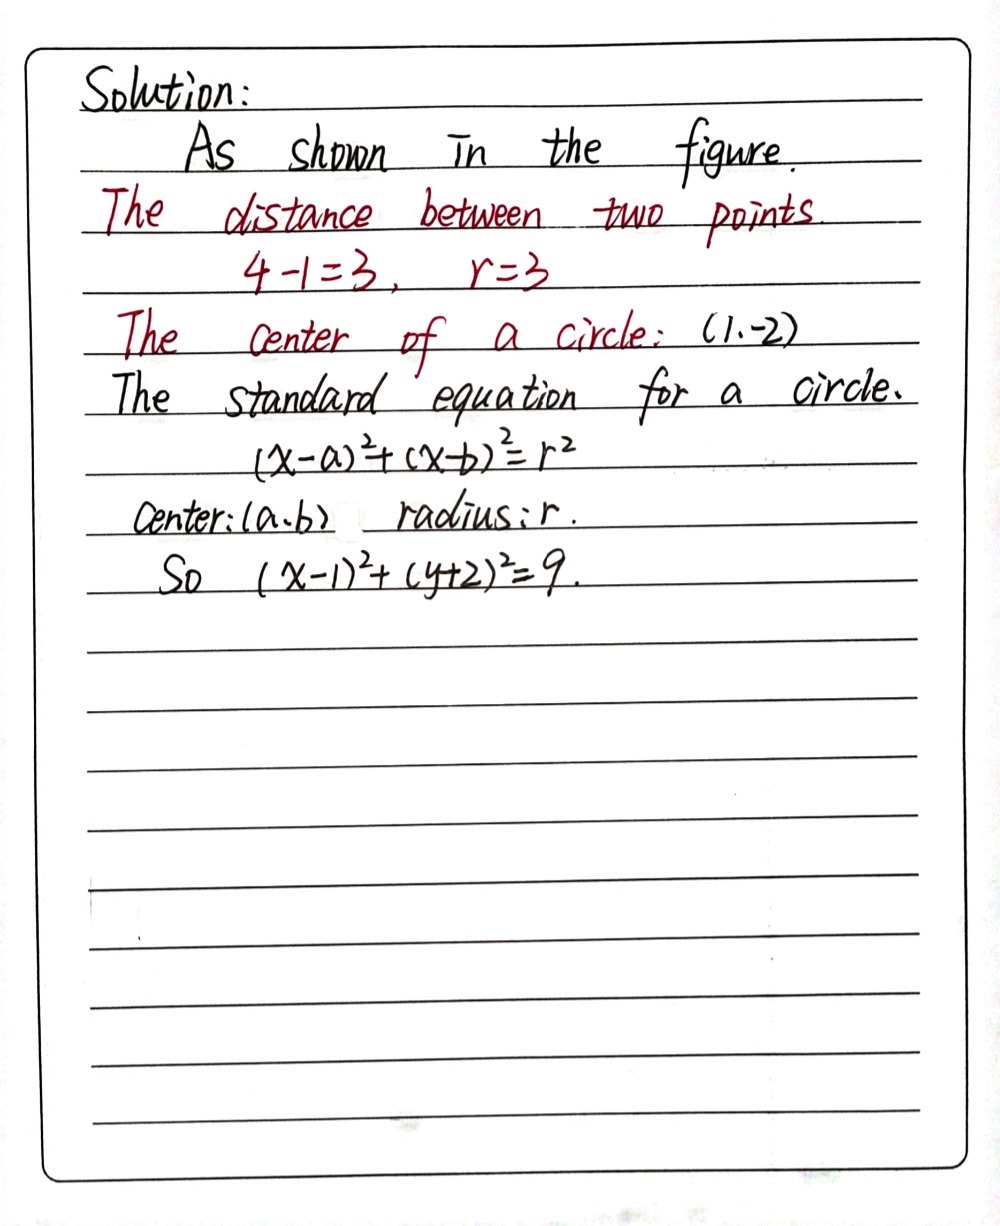 Solution:
As shown in the figure.
The distance between two points.
4-1=3, r=3
The center of a circle: (1.-2)
The standard equation for a circle.
(x-a)²+(x-b)²=r²
center:(a.b) radius:r.
So (x-1)²+(y+2)²=9.